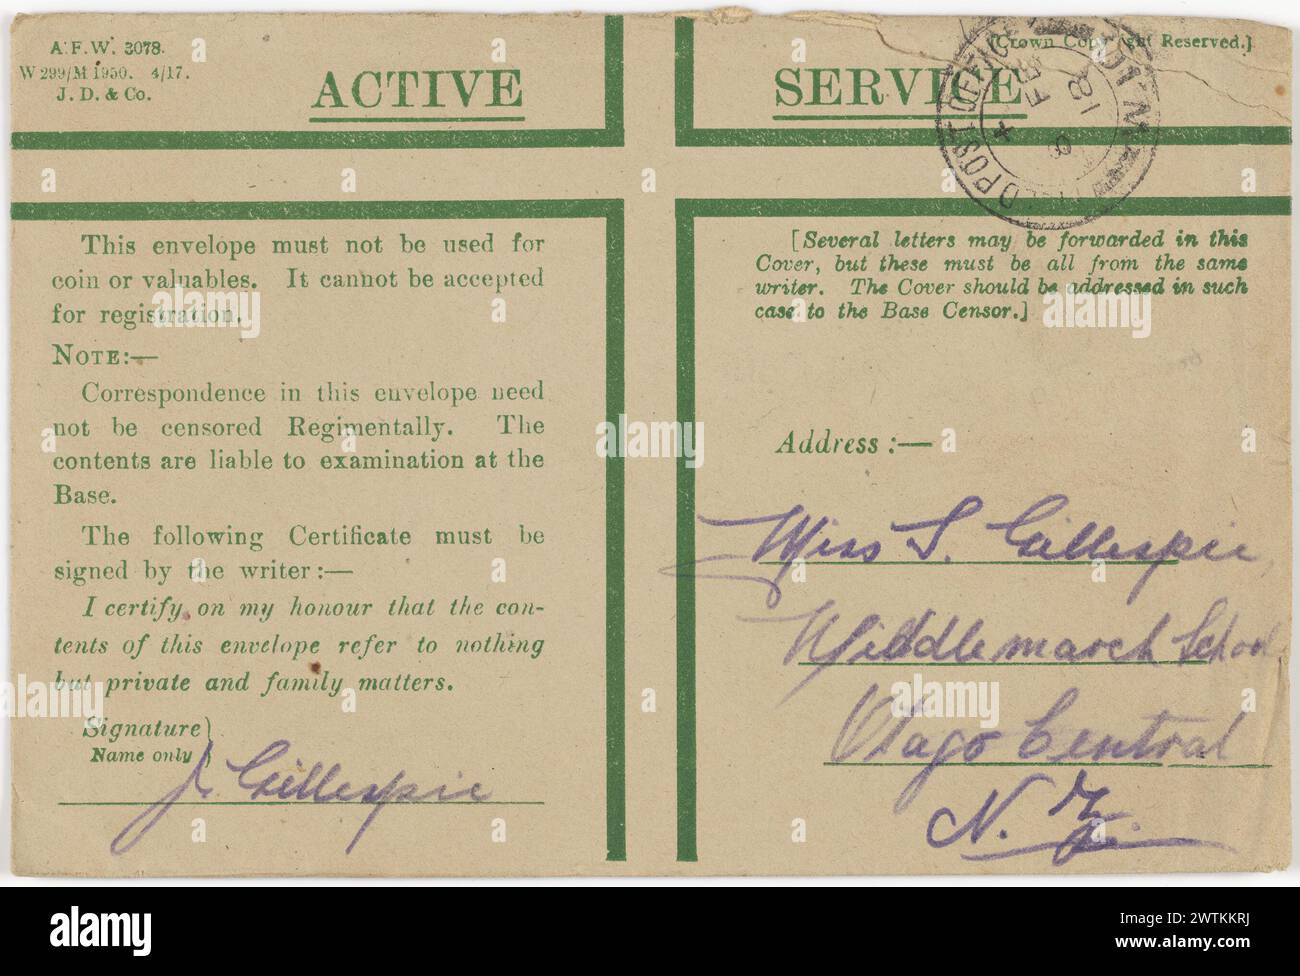 A.F.W. 3078.
W 299/M 1950. 4/17.
J. D. & Co.
ACTIVE
SERVICE
[Crown Copyright Reserved.]
POST OFFICE
FE
18
This envelope must not be used for
coin or valuables. It cannot be accepted
for registration.
NOTE:—
Correspondence in this envelope need
not be censored Regimentally. The
contents are liable to examination at the
Base.
The following Certificate must be
signed by the writer:—
I certify on my honour that the con-
tents of this envelope refer to nothing
but private and family matters.
Signature
Name only
J. Gillespie
[Several letters may be forwarded in this
Cover, but these must be all from the same
writer. The Cover should be addressed in such
case to the Base Censor.]
Address:—
Miss S. Gillespie
Middlemarch School
Otago Central
N. Z.
alamy
Image ID: 2WTKKRJ
www.alamy.com